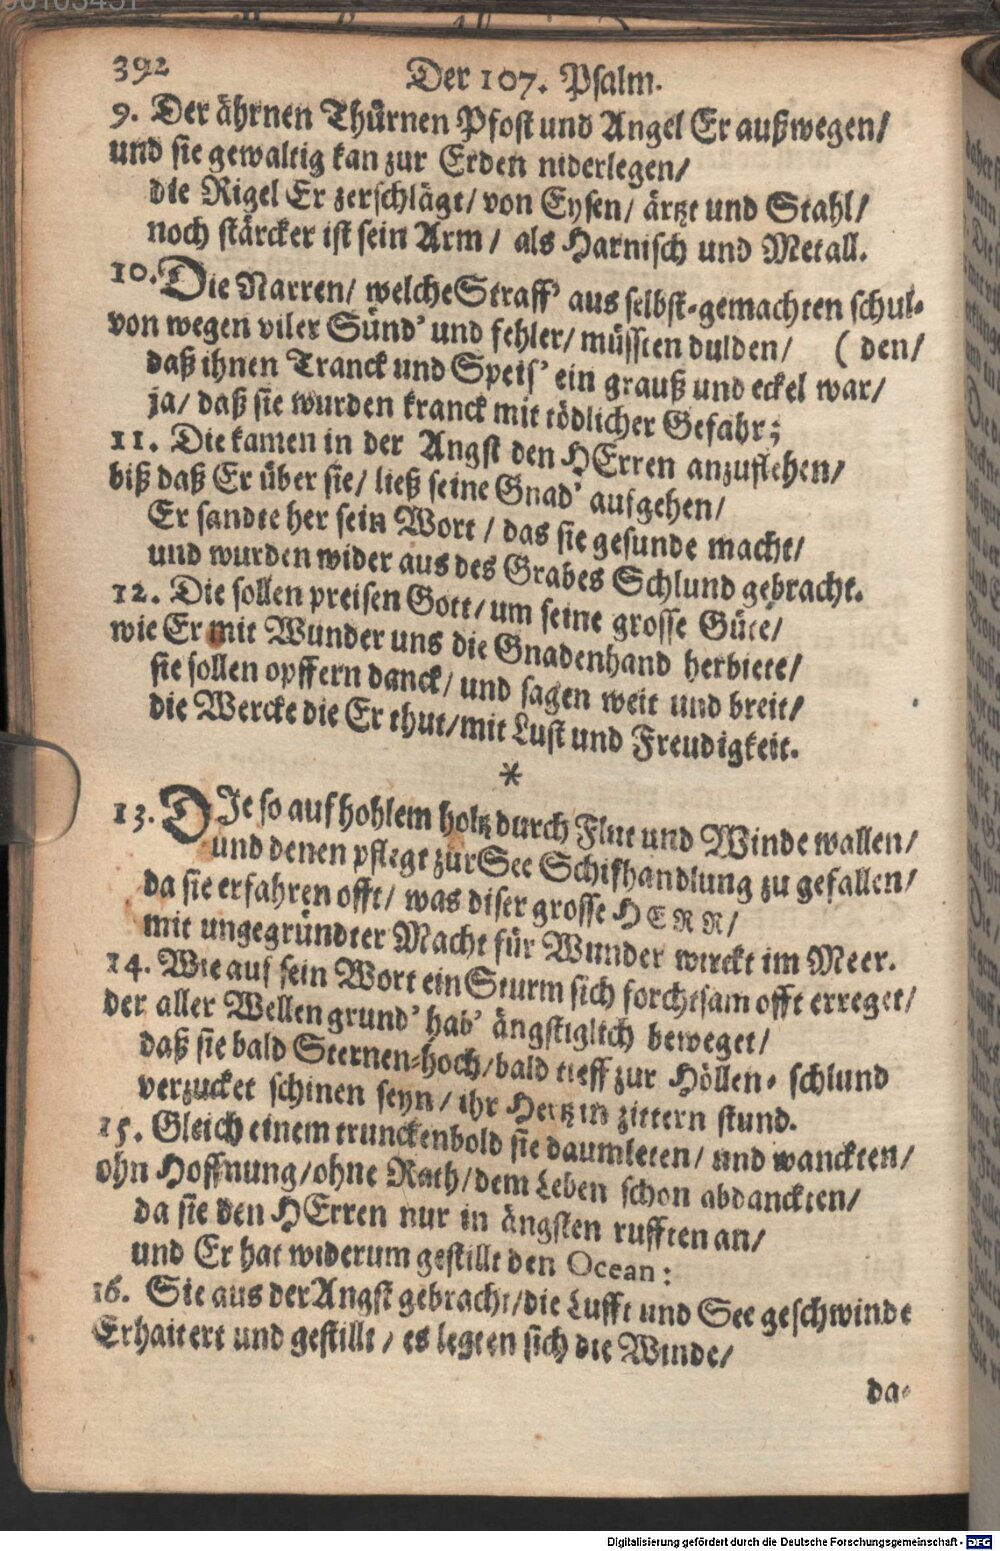 392
Der 107. Psalm.
9. Der ährnen Thürnen Pfost und Angel Er außwegen/
und sie gewaltig kan zur Erden niderlegen/
die Rigel Er zerschlägt/ von Eysen/ ärtzt und Stahl/
noch stärcker ist sein Arm/ als Harnisch und Metall.
10. Die Narren/ welche Straff' aus selbst-gemachten schul-
von wegen viler Sünd' und fehler/ müssten dulden/ (den/
daß ihnen Tranck und Speis' ein grauß und eckel war/
ja/ daß sie wurden kranck mit tödlicher Gefahr;
11. Die kamen in der Angst den HErren anzuflehen/
biß daß Er über sie/ ließ seine Gnad' aufgehen/
Er sandte her sein Wort/ das sie gesunde macht/
und wurden wider aus des Grabes Schlund gebracht.
12. Die sollen preisen Gott/ um seine grosse Güte/
wie Er mit Wunder uns die Gnadenhand herbiete/
sie sollen opffern danck/ und sagen weit und breit/
die Wercke die Er thut/ mit Lust und Freudigkeit.
*
13. DIe so auf hohlem holtz durch Flut und Winde wallen/
und denen pflegt zur See Schifhandlung zu gefallen/
da sie erfahren offt/ was diser grosse HERR/
mit ungegründter Macht für Wunder wirckt im Meer.
14. Wie auf sein Wort ein Sturm sich forchtsam offt erreget/
der aller Wellen grund' hab' ängstiglich beweget/
daß sie bald Sternen-hoch/ bald tieff zur Höllen-schlund
verzucket schinen seyn/ ihr Hertz in zittern stund.
15. Gleich einem trunckenbold sie daumleten/ und wanckten/
ohn Hoffnung/ ohne Rath/ dem Leben schon abdanckten/
da sie den HErren nur in ängsten rufften an/
und Er hat widerum gestillt den Ocean:
16. Sie aus der Angst gebracht/ die Lufft und See geschwinde
Erhaitert und gestillt/ es legten sich die Winde/
da-
Digitalisierung gefördert durch die Deutsche Forschungsgemeinschaft - DFG